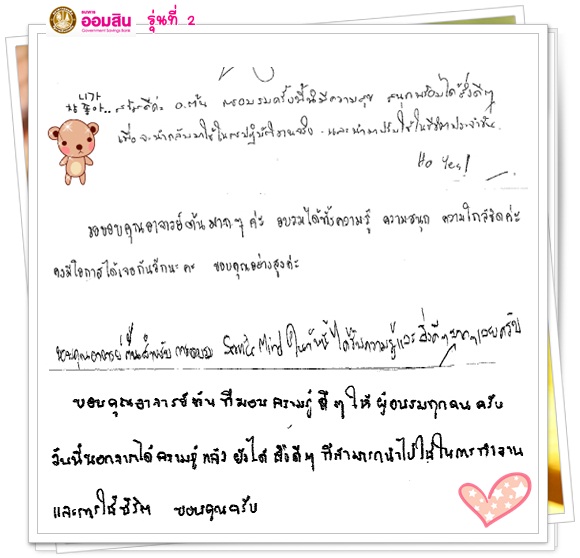 ธนาคาร
ออมสิน
Government Savings Bank
รุ่นที่ 2
니가
좋아.. สวัสดีค่ะ อ.ต้น การอบรมครั้งนี้มีความสุข สนุกพร้อมได้สิ่งดีๆ
เพื่อจะนำกลับมาใช้ในการปฏิบัติงานจริง และนำมาปรับใช้ในชีวิตประจำวัน.
Ho Yes!
ขอขอบคุณอาจารย์ต้นมากๆ ค่ะ อบรมได้ทั้งความรู้ ความสนุก ความใกล้ชิดค่ะ
คงมีโอกาสได้เจอกันอีกนะคะ ขอบคุณอย่างสูงค่ะ
ขอบคุณอาจารย์ต้นสำหรับการอบรม Service Mind ในวันนี้ ได้รับความรู้และสิ่งดีๆมากๆเลยครับ
ขอบคุณอาจารย์ต้น ที่มอบความรู้ ดีๆ ให้ ผู้อบรมทุกคน ครับ
วันนี้นอกจากได้ ความรู้ แล้ว ยังได้ สิ่งดีๆ ที่สามารถนำไปใช้ในการทำงาน
และการใช้ชีวิต ขอบคุณครับ